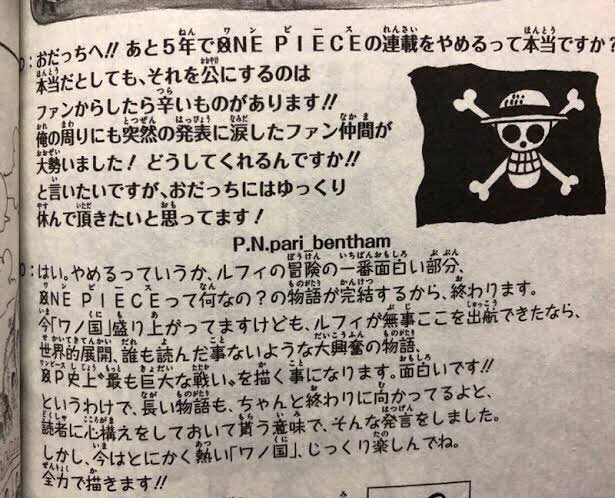 D:おだっちへ!! あと5年でONE PIECEの連載をやめるって本当ですか?
本当だとしても、それを公にするのは
ファンからしたら辛いものがあります!!
俺の周りにも突然の発表に涙したファン仲間が
大勢いました! どうしてくれるんですか!!
と言いたいですが、おだっちにはゆっくり
休んで頂きたいと思ってます!
P.N.pari_bentham
O:はい。やめるっていうか、ルフィの冒険の一番面白い部分、
ONE PIECEって何なの?の物語が完結するから、終わります。
今「ワノ国」盛り上がってますけども、ルフィが無事ここを出航できたなら、
世界的展開、誰も読んだ事ないような大興奮の物語、
OP史上〝最も巨大な戦い〟を描く事になります。面白いです!!
というわけで、長い物語も、ちゃんと終わりに向かってるよと、
読者に心構えをしておいて貰う意味で、そんな発言をしました。
しかし、今はとにかく熱い「ワノ国」、じっくり楽しんでね。
全力で描きます!!